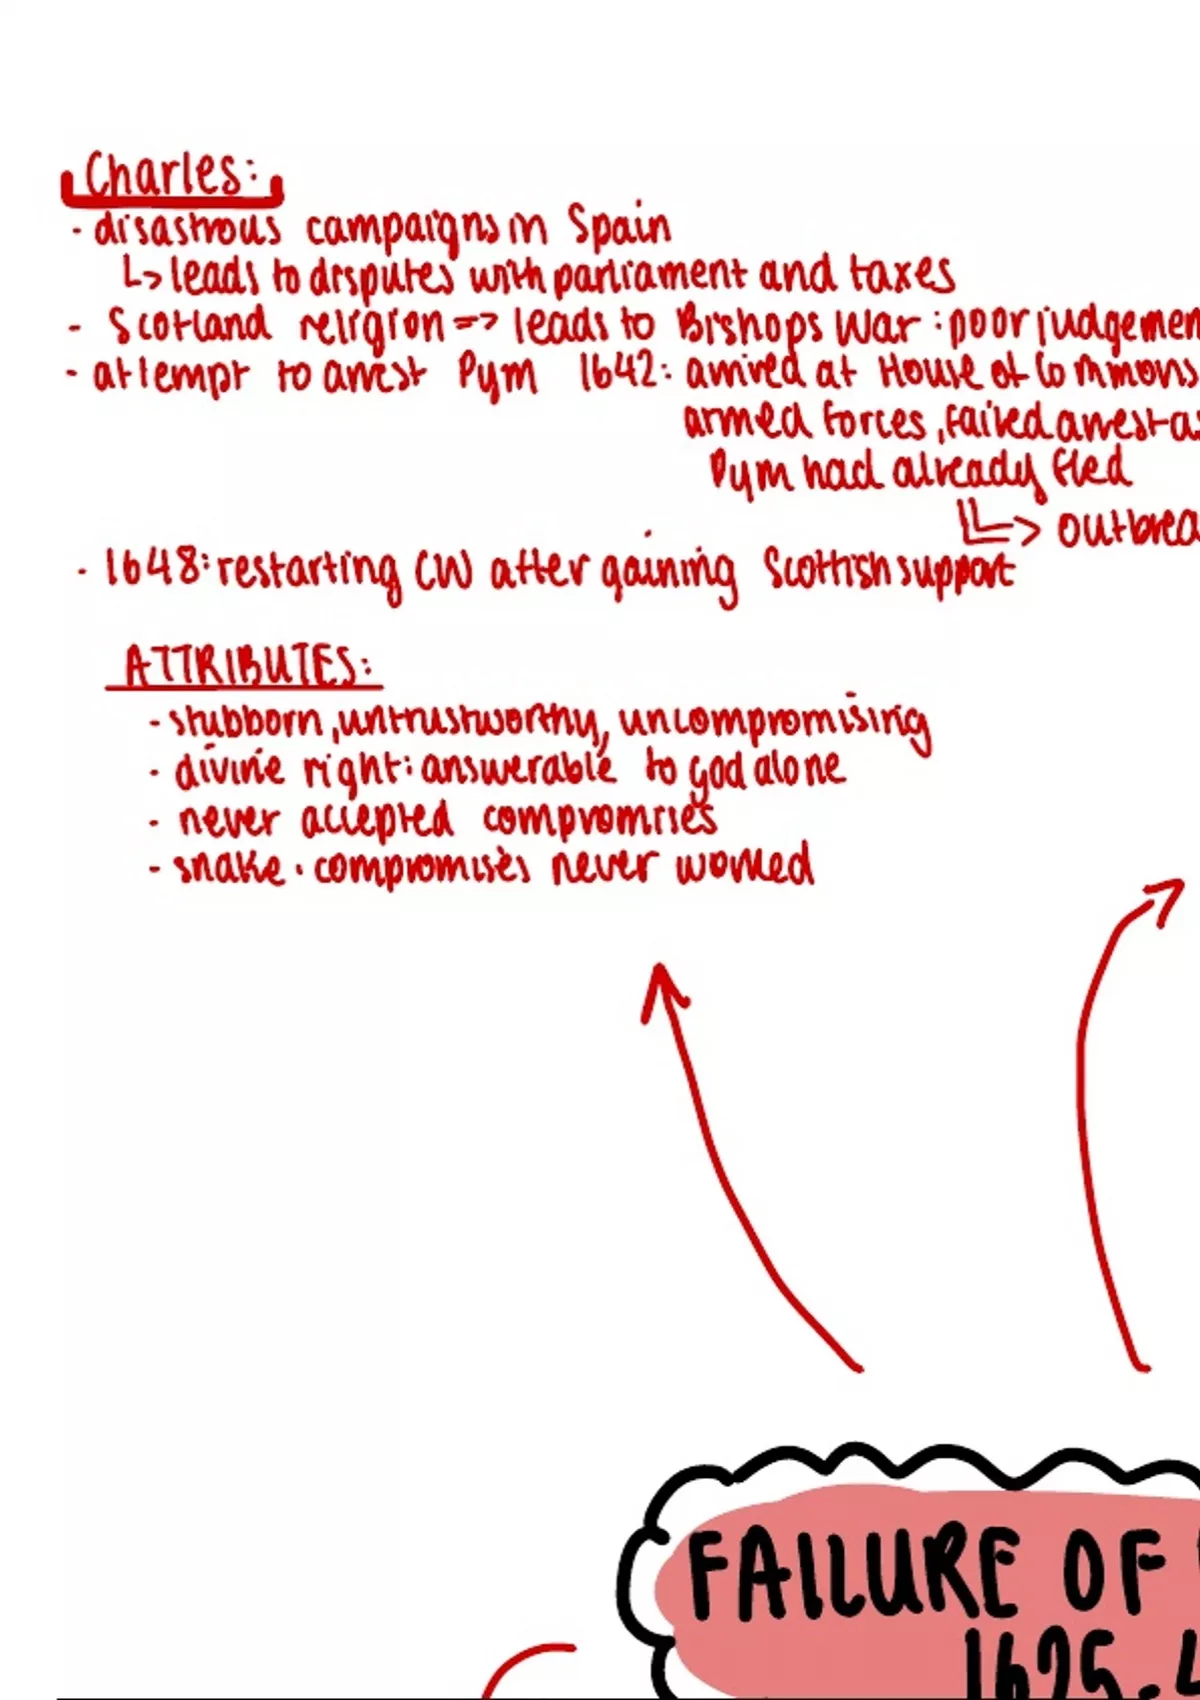 Charles:
- disastrous campaigns in Spain
↳ leads to disputes with parliament and taxes
- Scotland religion => leads to Bishops War : poor judgemen
- attempt to arrest Pym 1642: arrived at House of Commons
armed forces, failed arrest as
Pym had already fled
↳ outbrea
- 1648: restarting CW after gaining Scottish support
ATTRIBUTES:
- stubborn, untrustworthy, uncompromising
- divine right: answerable to god alone
- never accepted compromises
- snake · compromises never worked
FAILURE OF
1625-4